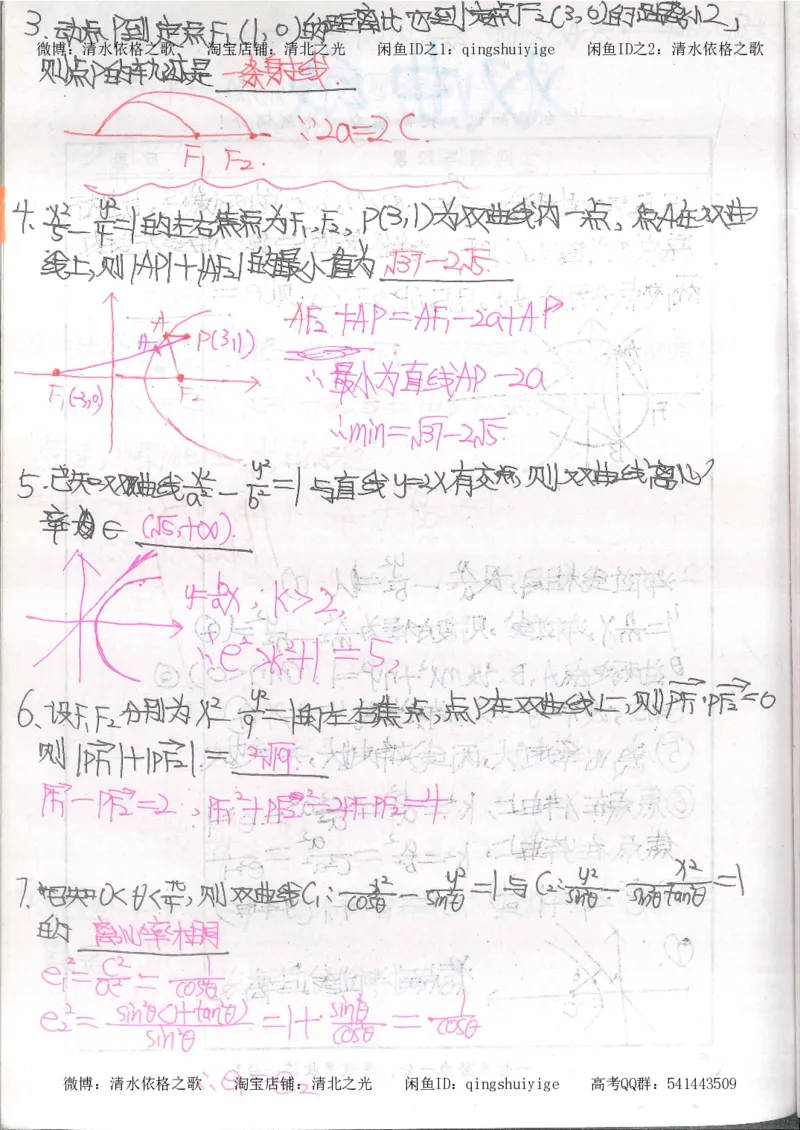 3.动点P到定点F₁(1,0)的距离比它到定点F₂(3,0)的距离小2,
微博:清水依格之歌 淘宝店铺:清北之光 闲鱼ID之1:qingshuiyige 闲鱼ID之2:清水依格之歌
则点P的轨迹是 一条射线.
∵2a=2c.
F₁ F₂.
4、x²/5-y²/4=1的左右焦点为F₁、F₂,P(3,1)为双曲线内一点,点A在双曲
线上,则|AP|+|AF₂|的最小值为 √37-2√5.
A
A P(3,1)
F₁(-3,0) F₂
AF₂+AP=AF₁-2a+AP
∴最小为直线AP-2a
∴min=√37-2√5.
5.已知双曲线x²/a²-y²/b²=1与直线y=2x有交点,则双曲线离心
率为∈ (√5,+∞).
y=b/a x,k>2,
∴e²>k²+1=5,
6、设F₁F₂分别为x²-y²/9=1的左右焦点,点P在双曲线上,则PF₁·PF₂=0
则|PF₁|+|PF₂|.= 2√10.
PF₁-PF₂=2,PF₁²+PF₂²-2PF₁PF₂=4.
7.已知0<θ<π/4,则双曲线C₁:x²/cos²θ-y²/sin²θ=1与C₂:y²/sin²θ-x²/sin²θtan²θ=1
的 离心率相同
e₁²=c²/a²=1/cos²θ
e₂²=sin²θ(1+tan²θ)/sin²θ=1+sin²θ/cos²θ=1/cos²θ
∴e₁=e₂
微博:清水依格之歌 淘宝店铺:清北之光 闲鱼ID:qingshuiyige 高考QQ群:541443509